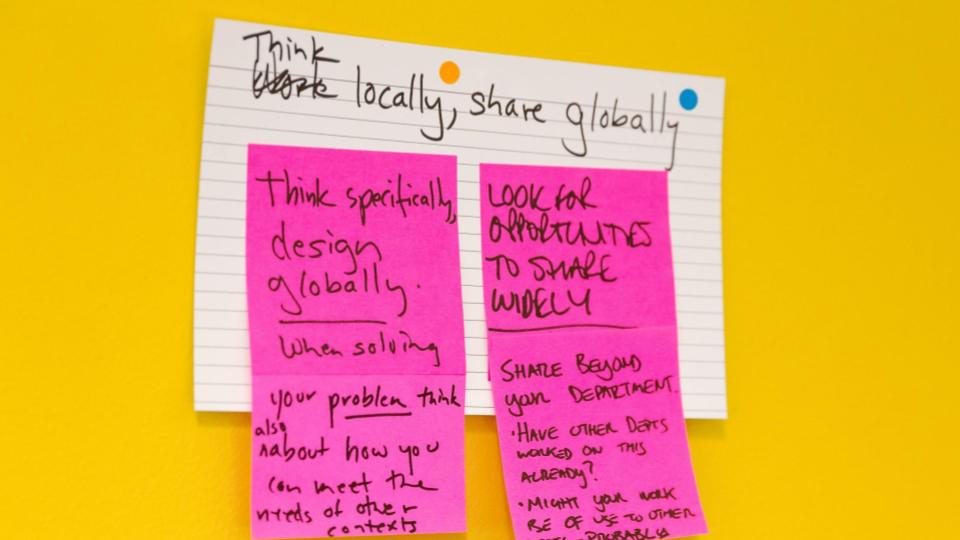 Think
Work locally, share globally
Think specifically,
design
globally.
When solving
your problem think
also
about how you
can meet the
needs of other
contexts
LOOK FOR
OPPORTUNITIES
TO SHARE
WIDELY
SHARE BEYOND
your DEPARTMENT.
· HAVE OTHER DEPTS
WORKED ON THIS
ALREADY?
· MIGHT your WORK
BE OF USE TO OTHER
DEPTS - PROBABLY